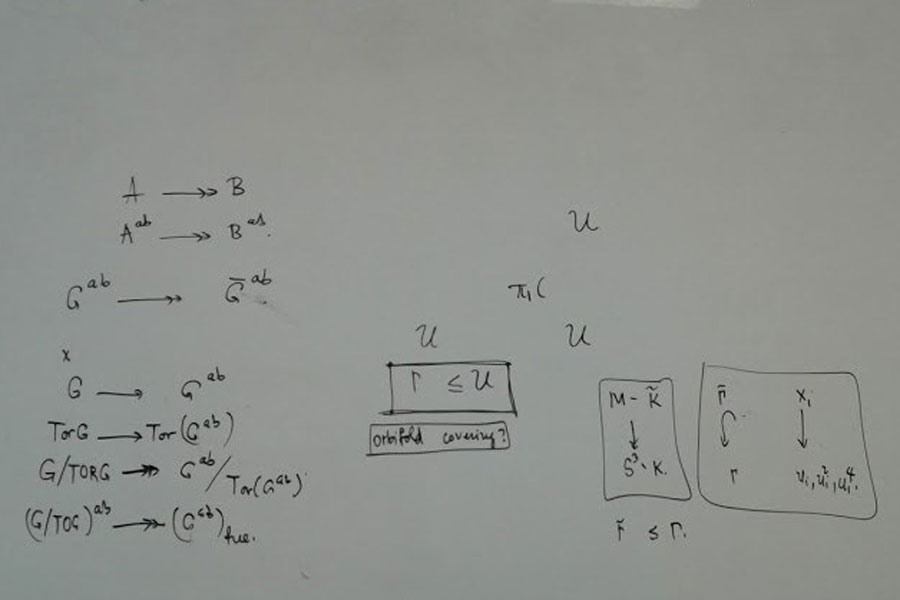 A ↠ B
A^ab ↠ B^ab.
G^ab ↠ G̅^ab
x
G → G^ab
TorG → Tor(G^ab)
G/TORG ↠ G^ab/Tor(G^ab)
(G/TOG)^ab ↠ (G^ab)_free.
U
π₁(
U U
Γ ≤ U
orbifold covering?
M - K̃
↓
S³ \ K.
Γ̃ ≤ Γ.
Γ̃ x_i
↓ ↓
Γ u_i, u_i², u_i⁴.